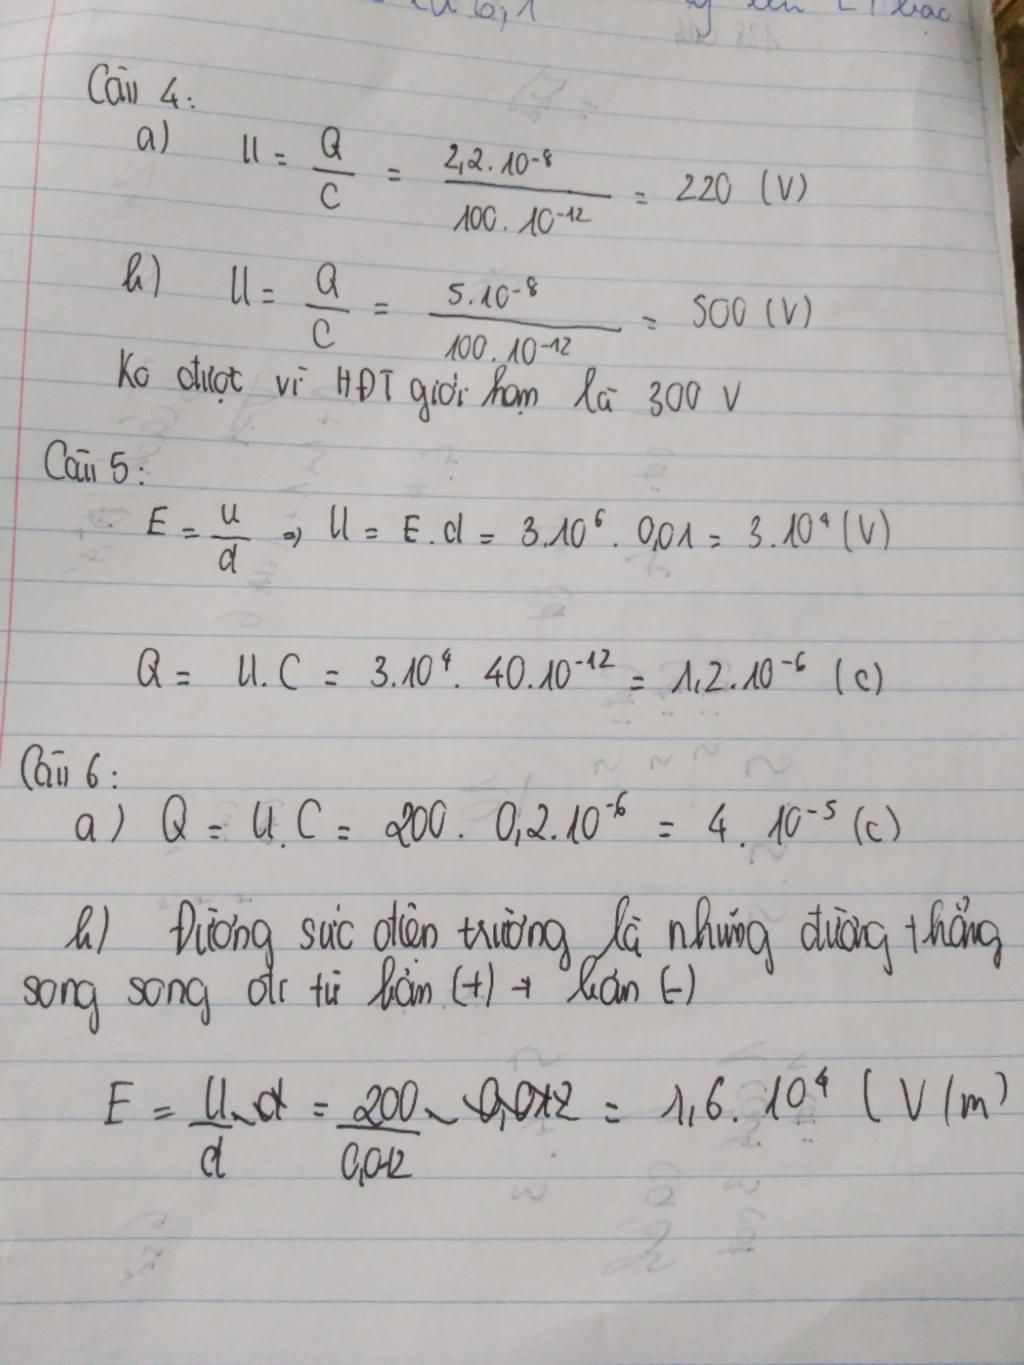 Câu 4:
a) U = Q/C = 2,2.10⁻⁸/100.10⁻¹² = 220 (V)
b) U = Q/C = 5.10⁻⁸/100.10⁻¹² = 500 (V)
Ko được vì HĐT giới hạn là 300 V
Câu 5:
E = U/d ⇒ U = E.d = 3.10⁶. 0,01 = 3.10⁴ (V)
Q = U.C = 3.10⁴. 40.10⁻¹² = 1,2.10⁻⁶ (C)
Câu 6:
a) Q = U.C = 200. 0,2.10⁻⁶ = 4.10⁻⁵ (C)
b) Đường sức điện trường là những đường thẳng
song song đi từ bản (+) → bản (-)
E = U/d = 200/0,012 = 1,6.10⁴ (V/m)